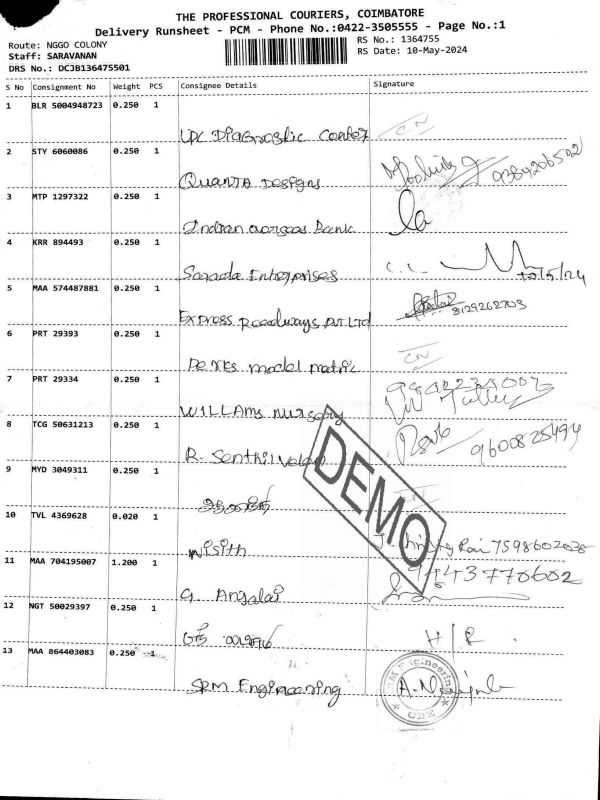 THE PROFESSIONAL COURIERS, COIMBATORE
Delivery Runsheet - PCM - Phone No.:0422-3505555 - Page No.:1
Route: NGGO COLONY
Staff: SARAVANAN
DRS No.: DCJB136475501
RS No.: 1364755
RS Date: 10-May-2024
S No Consignment No Weight PCS Consignee Details Signature
1 BLR 5004948723 0.250 1
UPC Diagnostic Center CN
2 STY 6060086 0.250 1
Quanta Designs 9384206502
3 MTP 1297322 0.250 1
Indian overseas Bank
4 KRR 894493 0.250 1
Sarada Enterprises 10/5/24
5 MAA 574487881 0.250 1
Express Roadways PVT LTD 8129262703
6 PRT 29393 0.250 1
Perks model matric CN
7 PRT 29334 0.250 1
WILLAMS nursery
8 TCG 50631213 0.250 1
R. Senthilvelan 9600825494
9 MYD 3049311 0.250 1
10 TVL 4369628 0.020 1
Nisith 7598602036
11 MAA 704195007 1.200 1
G. Angalai 9443770602
12 NGT 50029397 0.250 1
H/R.
13 MAA 864403083 0.250 1
SRM Engineering
DEMO